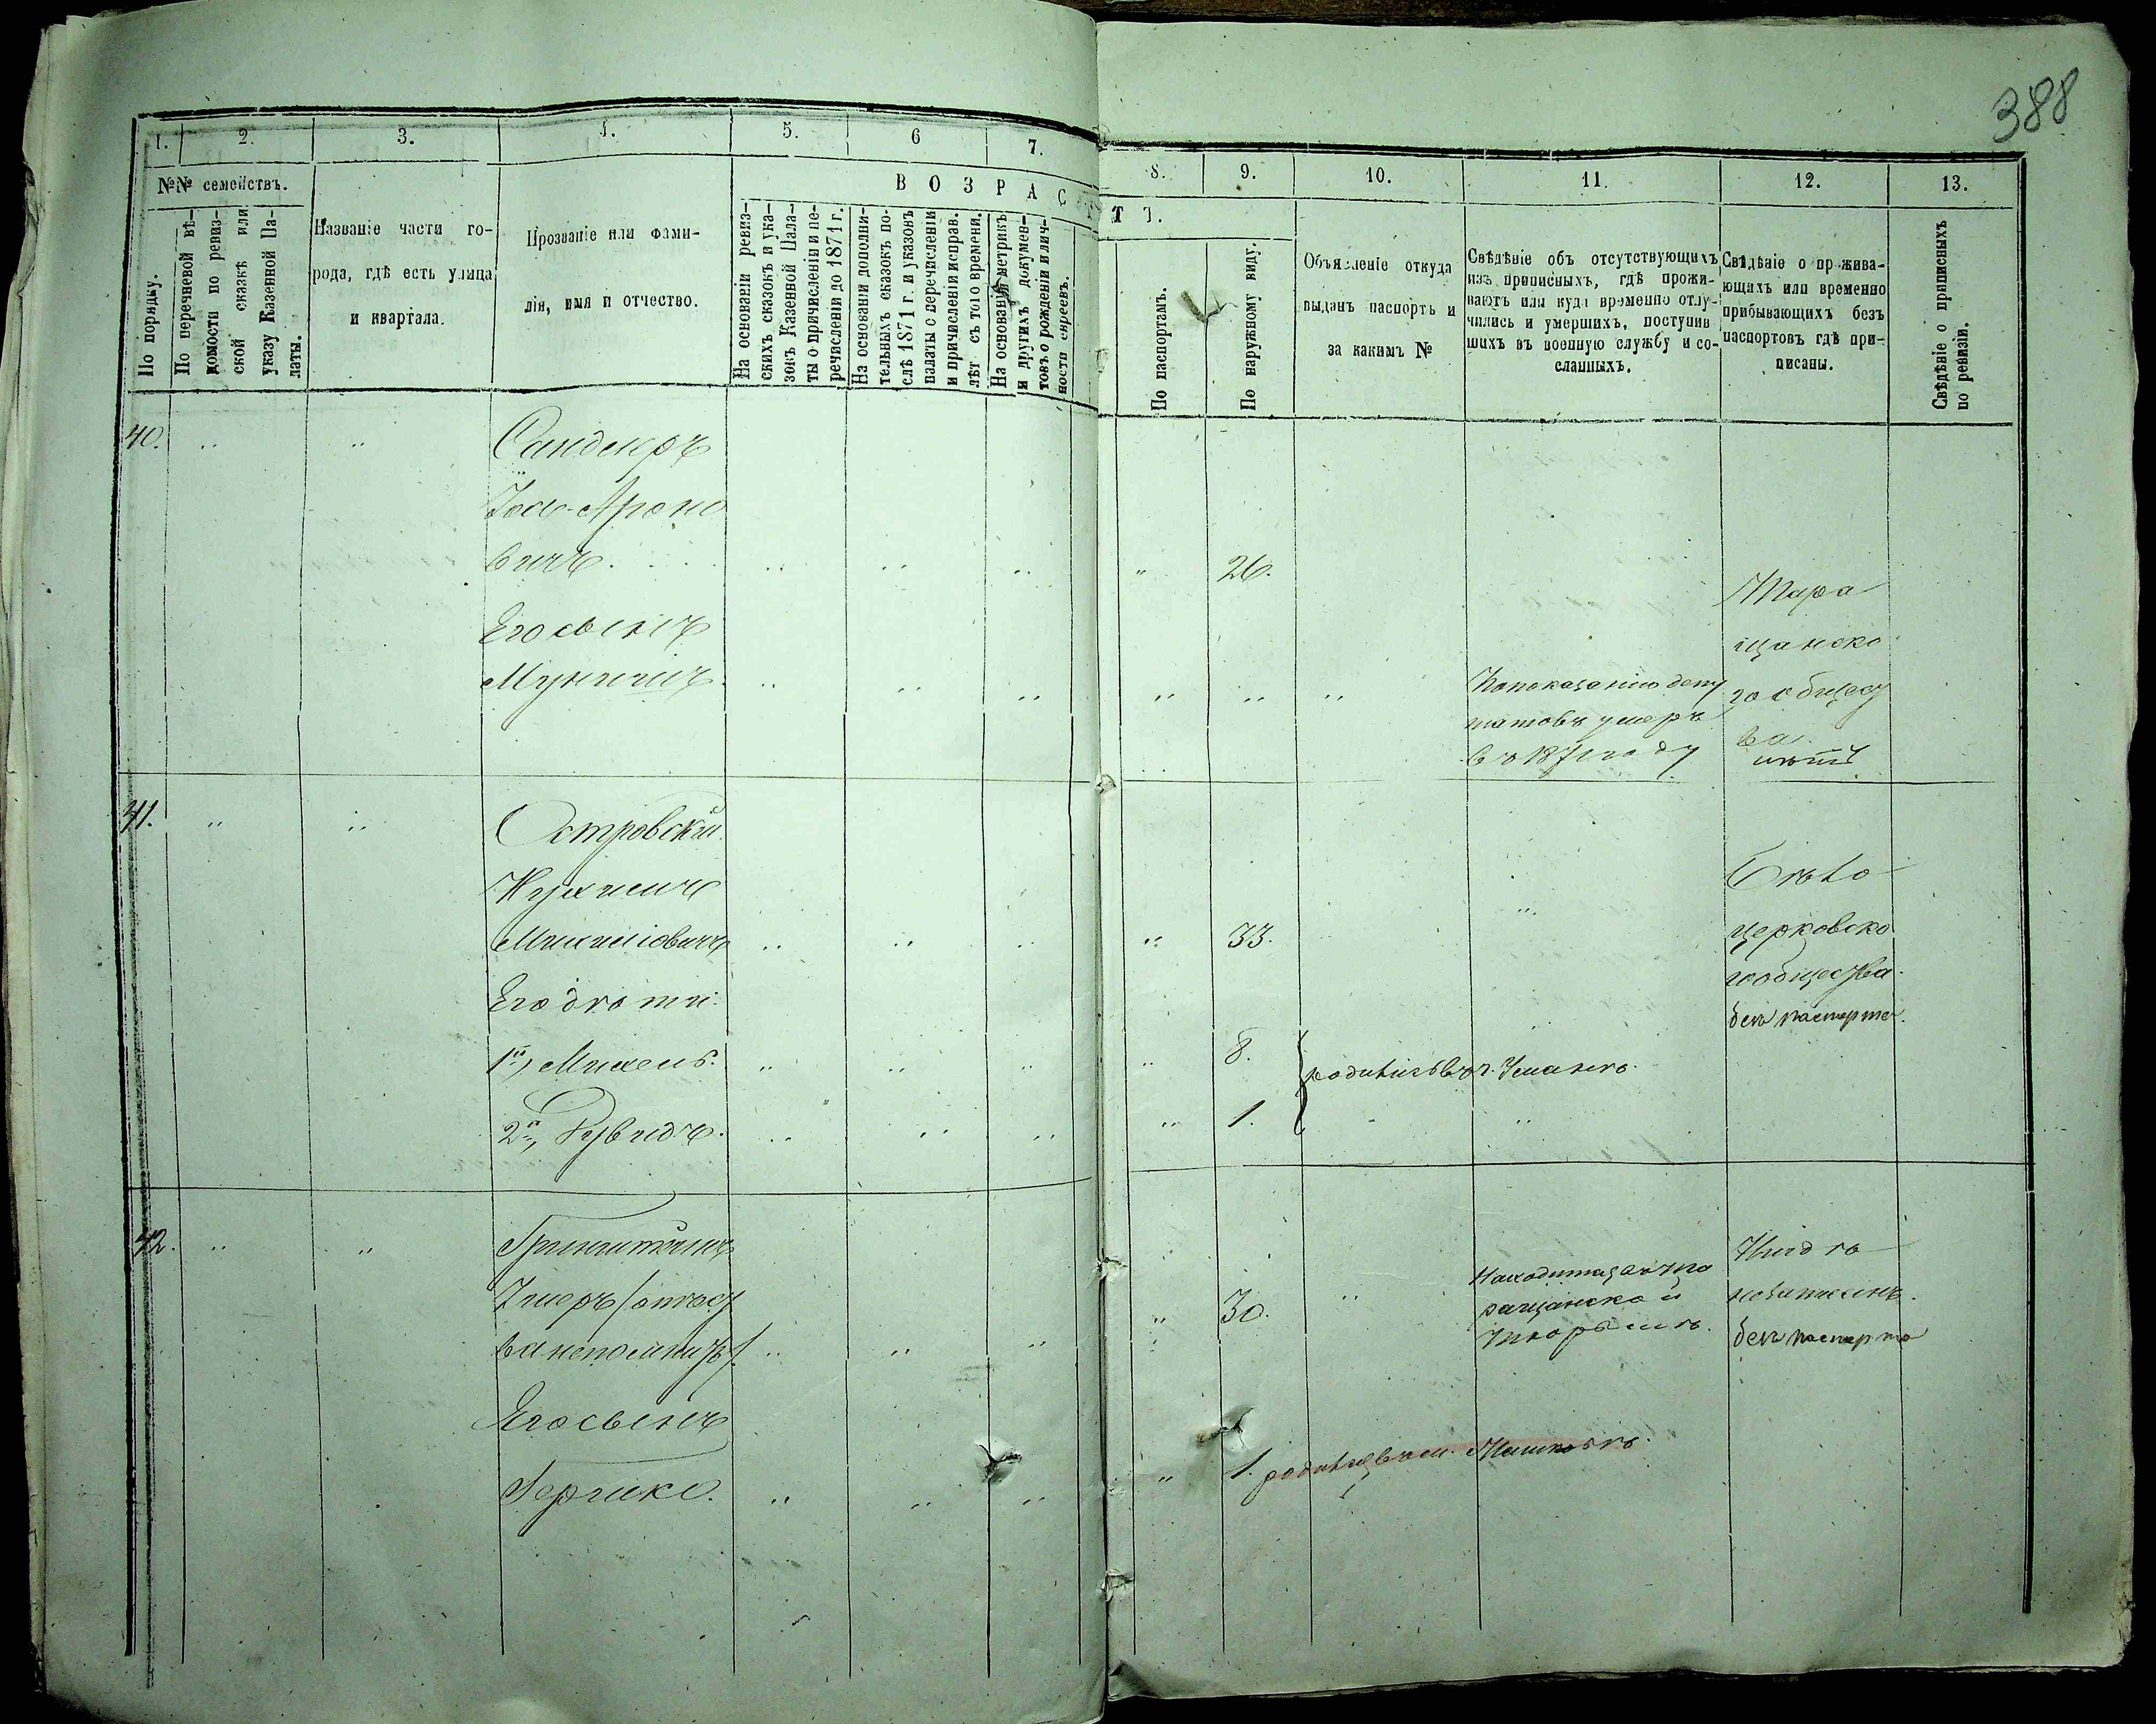 388
1. 2. 3. 4. 5. 6 7. 8. 9. 10. 11. 12. 13.
№№ семействъ.
По порядку.
По перечневой вѣ-
домости по ревиз-
ской сказкѣ или
указу Казенной Па-
латы.
Названіе части го-
рода, гдѣ есть улица
и квартала.
Прозваніе или фами-
лія, имя и отчество.
ВОЗРАСТ Т.
На основаніи ревиз-
скихъ сказокъ и ука-
зовъ Казенной Пала-
ты о причисленіи и пе-
речисленіи до 1871 г.
На основаніи дополни-
тельныхъ сказокъ по-
слѣ 1871 г. и указовъ
палаты с перечисленіи
и причисленіи исправ.
лѣт съ того времени.
На основаніи метрикъ
и другихъ докумен-
товъ о рожденіи и лич-
ности евреевъ.
По паспортамъ.
По наружному виду.
Объясленіе откуда
выданъ паспортъ и
за какимъ №
Свѣдѣніе объ отсутствующихъ
изъ приписныхъ, гдѣ прожи-
ваютъ или куда временно отлу-
чились и умершихъ, поступив
шихъ въ военную службу и со-
сланныхъ.
Свѣдѣніе о прожива-
ющихъ или временно
прибывающихъ безъ
паспортовъ гдѣ при-
писаны.
Свѣдѣніе о приписныхъ
по ревизіи.
40. " " Сандлеръ
Іось-Ароно
вичъ. " " " " 26.
Его сынъ
" " " " " "
По показанію депу
татовъ умеръ
въ 1871 году
Тара
щанско
го общест
ва
41. " " Островскій
Михилювичъ " " " " 33. "
Его дѣти:
1й, Михель. " " " " 8. "
2й, " " " " 1. "
родились въ г. Уманѣ.
Бѣло
церковско
го общества
безъ паспорта.
42. " " Гринштейнъ
(отчест
ва непомнитъ). " " " " 30. "
Находится въ та
ращанской
тюрьмѣ.
безъ паспорта
Его сынъ
Гершко. " " " " 1. родился въ м.